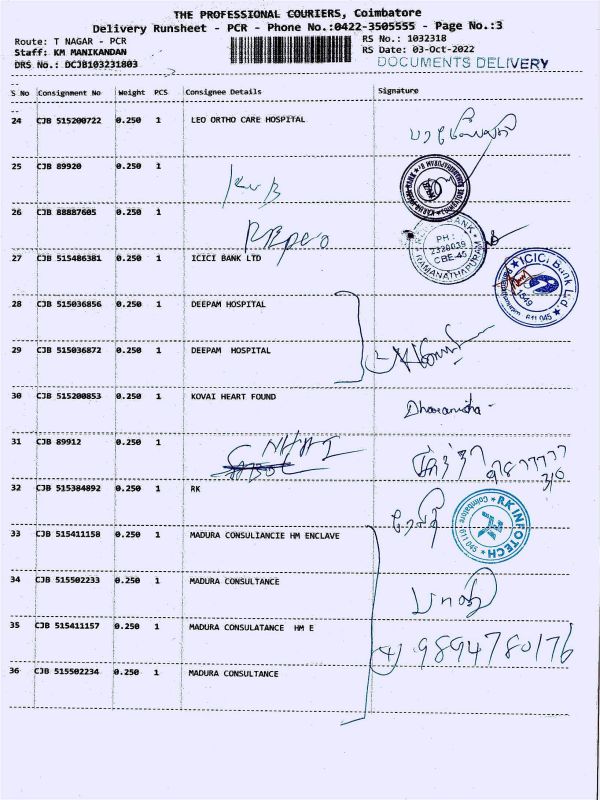 THE PROFESSIONAL COURIERS, Coimbatore
Delivery Runsheet - PCR - Phone No.:0422-3505555 - Page No.:3
Route: T NAGAR - PCR RS No.: 1032318
Staff: KM MANIKANDAN RS Date: 03-Oct-2022
DRS No.: DCJB103231803 DOCUMENTS DELIVERY
S No Consignment No Weight PCS Consignee Details Signature
24 CJB 515200722 0.250 1 LEO ORTHO CARE HOSPITAL
25 CJB 89920 0.250 1
KVB
26 CJB 88887605 0.250 1
PH :
2320039
CBE-45
RAMANATHAPURAM
27 CJB 515486381 0.250 1 ICICI BANK LTD
ICICI Bank Ltd.
1549
28 CJB 515036856 0.250 1 DEEPAM HOSPITAL
29 CJB 515036872 0.250 1 DEEPAM HOSPITAL
30 CJB 515200853 0.250 1 KOVAI HEART FOUND
Dharanisha
31 CJB 89912 0.250 1
NHAI
32 CJB 515384892 0.250 1 RK
RK INFOTECH
Coimbatore
33 CJB 515411158 0.250 1 MADURA CONSULIANCIE HM ENCLAVE
34 CJB 515502233 0.250 1 MADURA CONSULTANCE
35 CJB 515411157 0.250 1 MADURA CONSULATANCE HM E
(4) 9894780176
36 CJB 515502234 0.250 1 MADURA CONSULTANCE